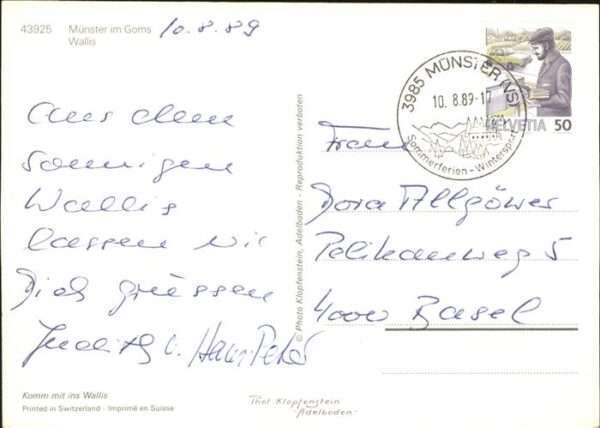 43925 Münster im Goms
Wallis
10.8.89
Aus dem
sonnigen
Wallis
lassen wir
Dich grüssen
Judith u. Hans Peter
Komm mit ins Wallis
Printed in Switzerland - Imprimé en Suisse
© Photo Klopfenstein, Adelboden - Reproduktion verboten
Thet Klopfenstein
Adelboden
3985 MÜNSTER (VS)
10.8.89-17
Sommerferien - Winterspor
HELVETIA 50
Frau
Dora Allgöwer
Pelikanweg 5
4000 Basel